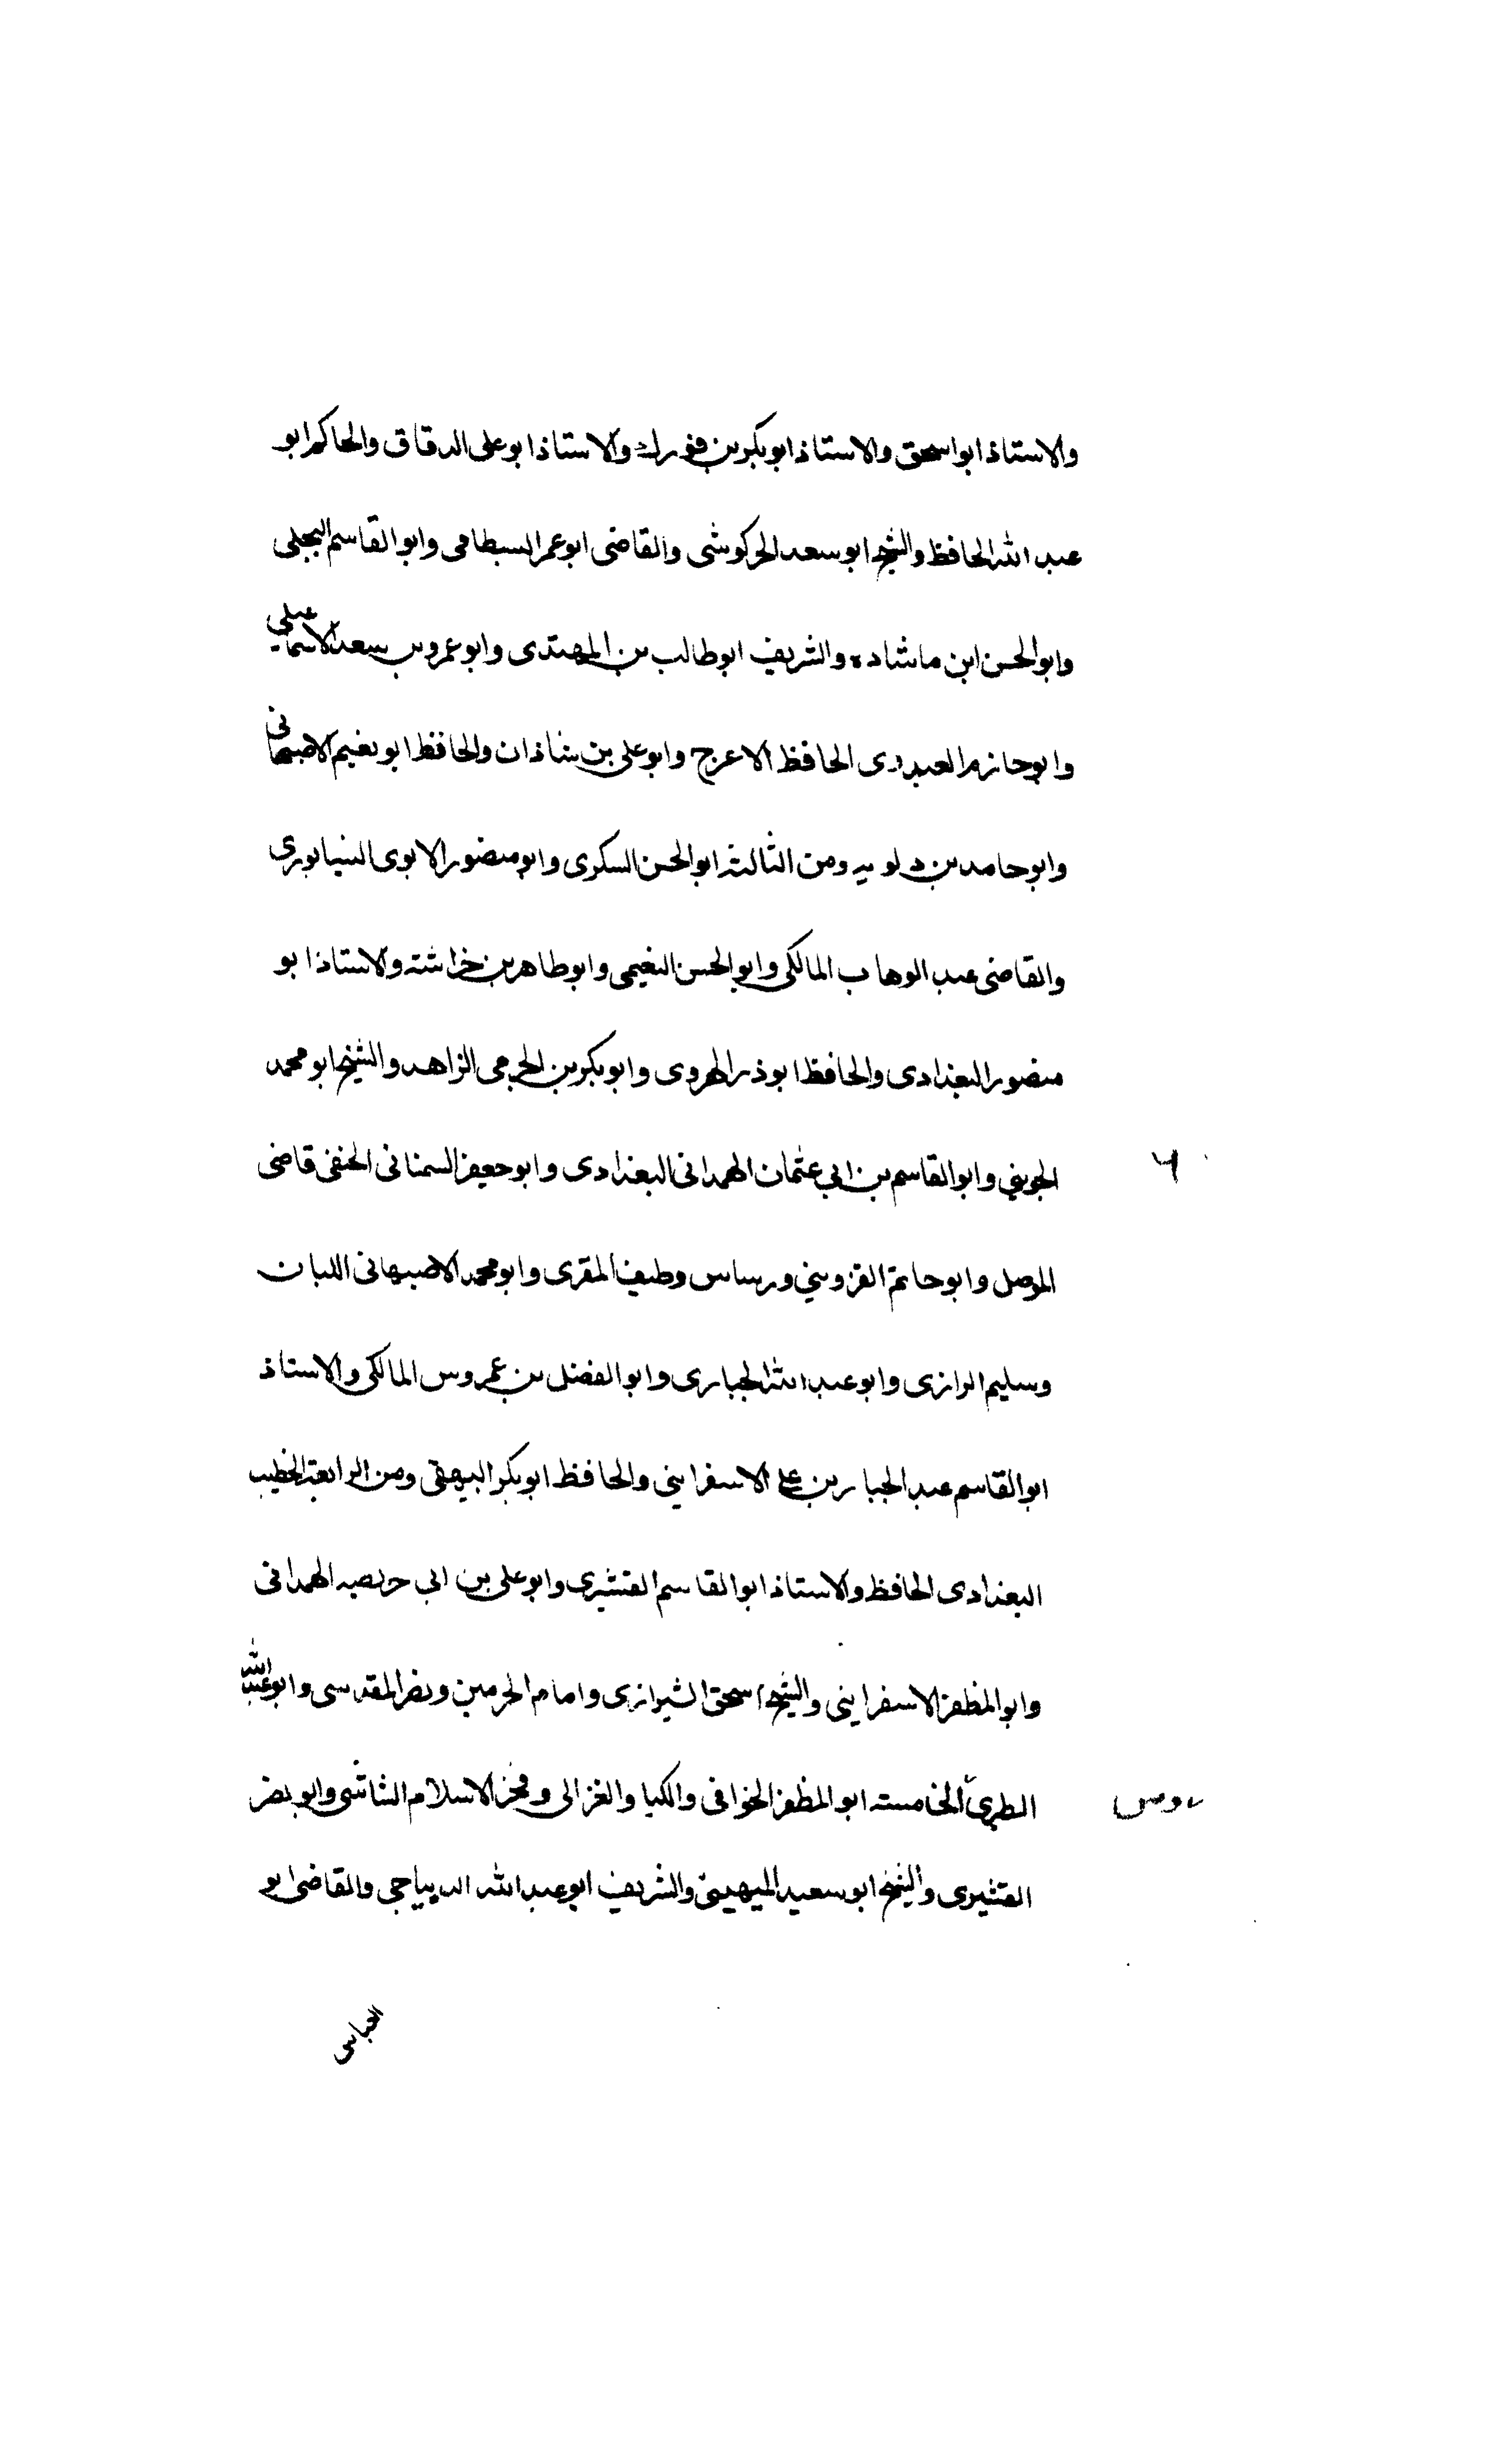 والاستاذ ابو اسحق والاستاذ ابو بكر بن فورك والاستاذ ابو على الدقاق والحاكم ابو
عبد الله الحافظ والشيخ ابو سعد الحركوشى والقاضى ابو عمر السبطامى وابو القاسم البجلى
وابو الحسن ابن ماشاده والشريف ابو طالب بن المهتدى وابو عمرو بن سعد الاسماعيلي
وابو حازم العبدوى الحافظ الاعرج وابو على بن شاذان والحافظ ابو نعيم الاصبهانى
وابو حامد بن دلويه ومن الثالثة ابو الحسن السكرى وابو منصور الابوى النيسابورى
والقاضى عبد الوهاب المالكى وابو الحسن النعيمى وابو طاهر بن خراشته والاستاذ ابو
منصور البغدادى والحافظ ابو ذر الهروى وابو بكر بن الجرمى الزاهد والشيخ ابو محمد
الجوينى وابو القاسم بن ابى عثمان الهمدانى البغدادى وابو جعفر السمنانى الحنفى قاضى
الموصل وابو حاتم القزوينى ورساس وطيف المقرى وابو محمد الاصبهانى اللبان
وسليم الرازى وابو عبد الله الجبارى وابو الفضل بن عمروس المالكى والاستاذ
ابو القاسم عبد الجبار بن على الاسفراينى والحافظ ابو بكر البيهقى ومن الرابعة الخطيب
البغدادى الحافظ والاستاذ ابو القاسم القشيرى وابو على بن ابى حريصه الهمدانى
وابو المظفر الاسفراينى والشيخ اسحق الشيرازى وامام الحرمين ونصر المقدسى وابو عبد الله
الطبرى الخامسة ابو المظفر الخوافى والكيا والغزالى وفخر الاسلام الشاشى وابو نصر
القشيرى والشيخ ابو سعيد الميهنى والشريف ابو عبد الله الديباجى والقاضى ابو
العباس